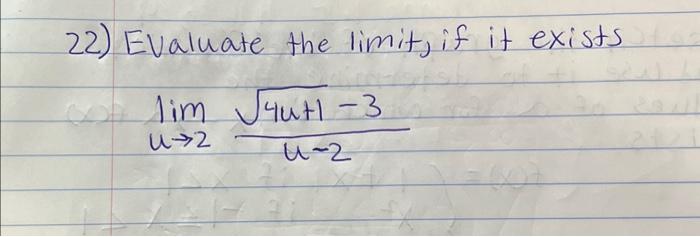 22) Evaluate the limit, if it exists
lim √4u+1 - 3
u→2 u-2